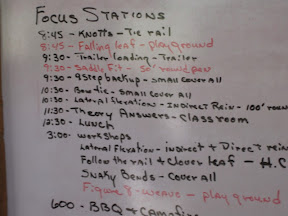 Focus Stations
8:45 - Knotts - Tie rail
8:45 - Falling leaf - playground
9:30 - Trailer loading - Trailer
9:30 - Saddle Fit - 50' round pen
9:30 - 4 Step backup - small cover All
10:30 - Bowtie - small cover All
10:30 - Lateral flexations - Indirect Rein - 100' roun
11:30 - Theory Answers - Classroom
12:30 - Lunch
3:00 - workshops
Lateral flexation - indirect + Direct rein
Follow the rail + Clover leaf - H.C
Snaky Bends - cover All
Figure 8 - weave - playground
6:00 - BBQ + Campfire